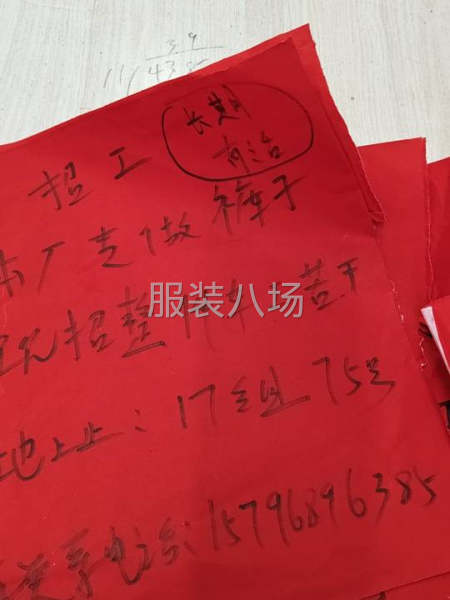 39
11 4385
长期
有活
招工
本厂专做裤子
现招整件车工若干
服装八场
地址:17组75号
联系电话:15796896385